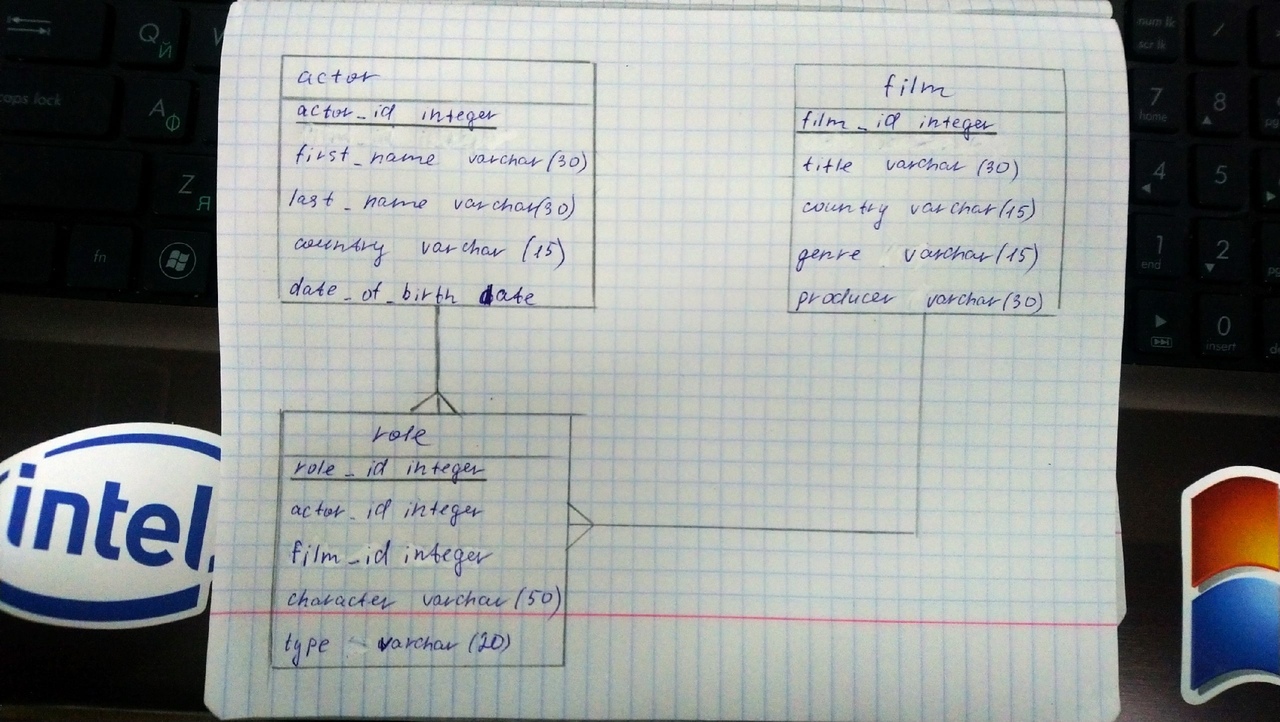 actor
actor_id integer
first_name varchar(30)
last_name varchar(30)
country varchar (15)
date_of_birth date
film
film_id integer
title varchar (30)
country varchar(15)
genre varchar(15)
producer varchar(30)
role
role_id integer
actor_id integer
film_id integer
character varchar (50)
type varchar (20)
intel
Q Й
caps lock
A Ф
Z Я
fn
num lk
scr lk
/
7
home
8
4
5
1
end
2
0
insert